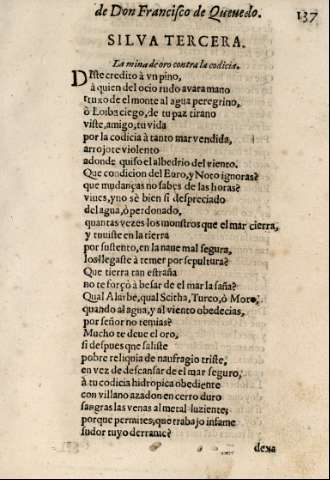 de Don Francisco de Queuedo.
137
SILVA TERCERA.
La mina de oro contra la codicia.
Diste credito à vn pino,
à quien del ocio rudo auara mano
truxo de el monte al agua peregrino,
ò Loiba ciego, de tu paz tirano
viste, amigo, tu vida
por la codicia à tanto mar vendida,
arrojote violento
adonde quiso el albedrio del viento.
Que condicion del Euro, y Noto ignoras?
que mudanças no sabes de las horas?
viues, y no sè bien si despreciado
del agua, ò perdonado,
quantas vezes los monstros que el mar cierra,
y tuuiste en la tierra
por sustento, en la naue mal segura,
los llegaste à temer por sepultura?
Que tierra tan estraña
no te forçò à besar de el mar la saña?
Qual Alarbe, qual Scitha, Turco, ò Moro,
quando al agua, y al viento obedecias,
por señor no temias?
Mucho te deue el oro,
si despues que saliste
pobre reliquia de naufragio triste,
en vez de descansar de el mar seguro,
à tu codicia hidropica obediente
con villano azadon en cerro duro
sangras las venas al metal luziente;
porque permites, que trabajo infame
sudor tuyo derrame?
dexa